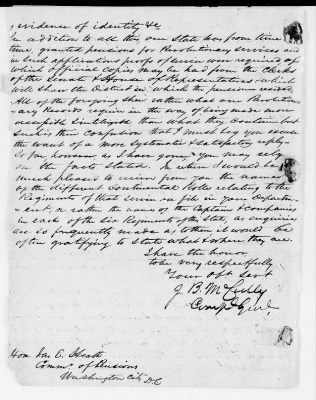 evidence of identity &c
In addition to all this our State has from time to
time granted pensions for Revolutionary services and
in such applications proofs of service were required of
which official copies may be had from the Clerks
of the Senate & House of Representatives which
will show the District in which the pensioner resided
All of the foregoing shew rather what our Revolution-
ary Records require in the way of being made more
susceptible &
than what they contain but
such is their confusion that I must beg you excuse
the want of a more systematic & satisfactory reply
So far however as I have gone you may rely
on the facts stated. In return I would be
much pleased to receive from you the names
of the different Continental Rolls relating to the
Regiments of that service on file in your Depart-
ment, or rather the names of the Captains & companies
in each of the six Regiments of the State, as inquiries
are so frequently made as to them it would be
often gratifying to state what & where they are.
I have the honor
to be very respectfully
Your obt Servt
J. B. McCully
Comp. Genl.
Hon Jas. E. Heath
Commr. of Pensions
Washington City D.C